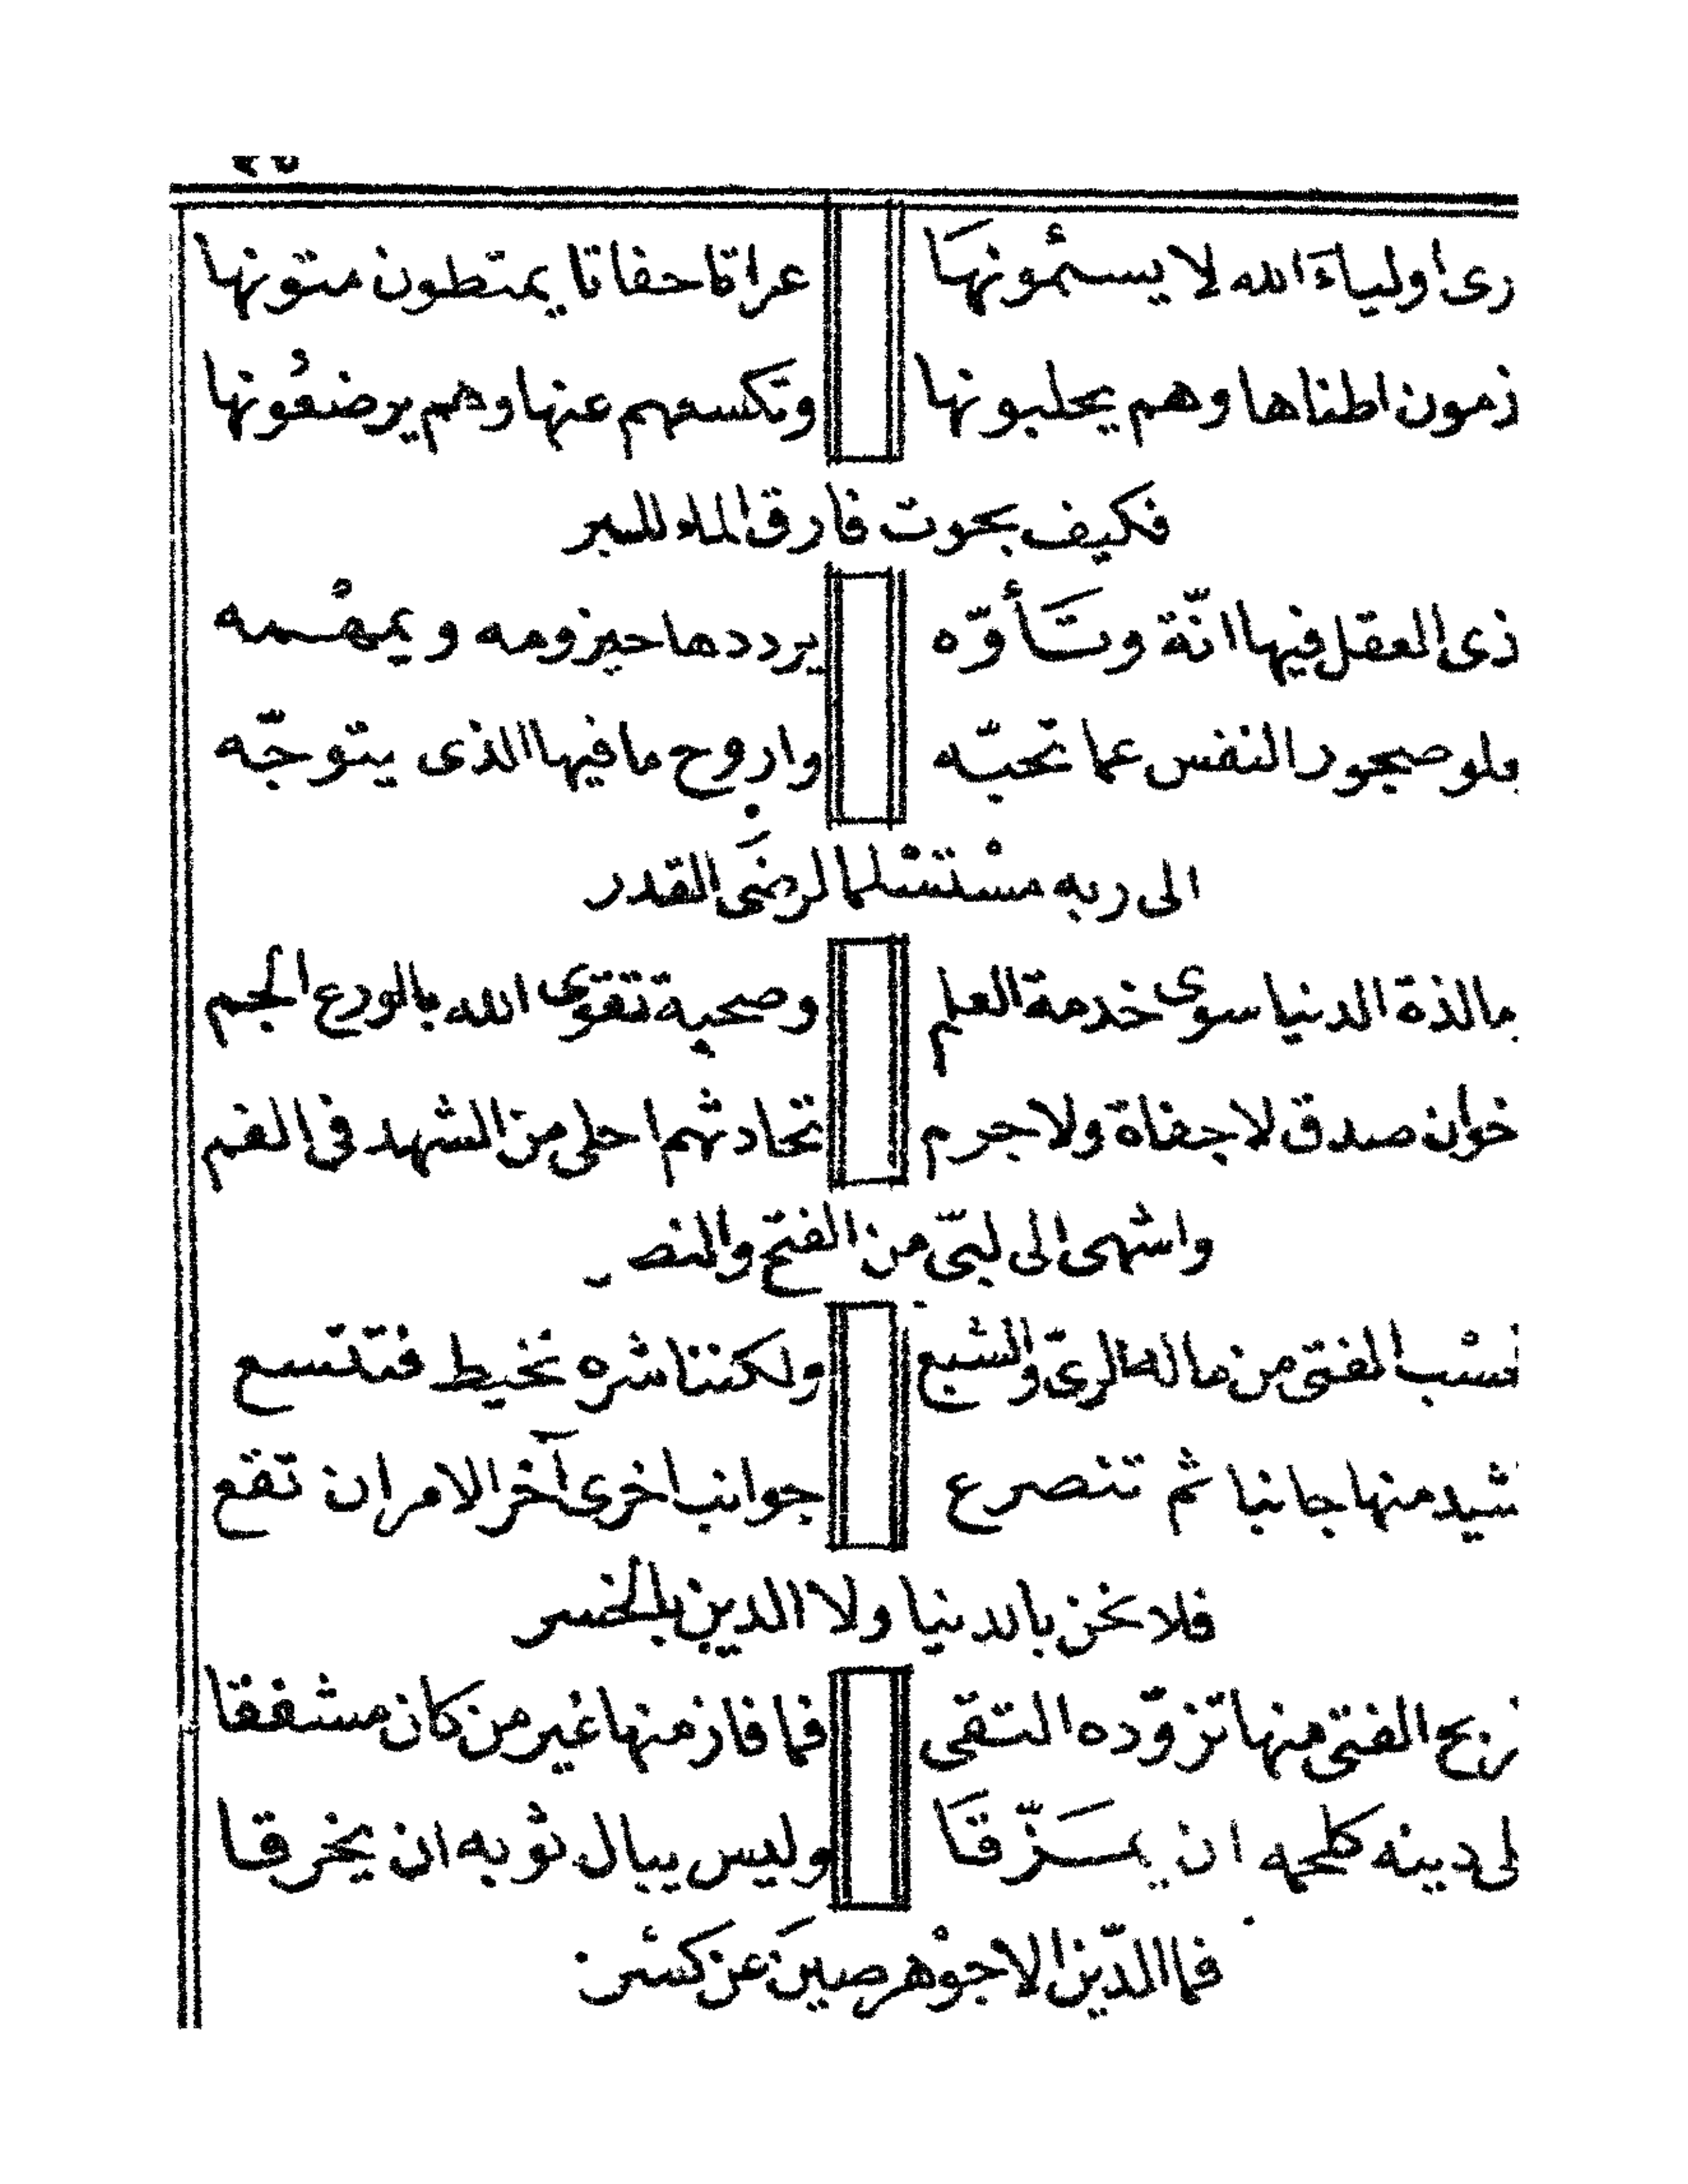 رى اولياءَ الله لا يسئمونهَا عراتا حفاتا يمتطون متونها
زمون اطناها وهم يحلبونها وتكسعهم عنها وهم يرضعُونها
فكيف بحوت فارق الماء للبر
ذى العقل فيها انّة وتَأوّه يرددها حيزومه ويمهْمه
صجور النفس عما تحبّه واروح ما فيها الذى يتوجّه
الى ربه مسْتسْلما لرضَى القدر
مالذة الدنيا سوى خدمة العلم وصحبة تقوى الله بالورع الجم
خوان صدق لا جفاة ولا جرم تحادثهم احلى من الشهد فى الفم
واشهى الى لبّى من الفتح والنصر
سْب الفتى من ماله الرىّ والشبع ولكننا شره نخيط فتدّسع
شيد منها جانبا ثم تنصرع جوانب اخرى آخر الامر ان تقع
فلا نحن بالدنيا ولا الدين بالخسر
ربح الفتى منها تزوّده التقى فما فاز منها غير من كان مشفقا
لى دينه كلحمه ان يمَزّقَا وليس يبال ثوبه ان يخرقا
فما الدّين الا جوْهر صينَ عن كسْر